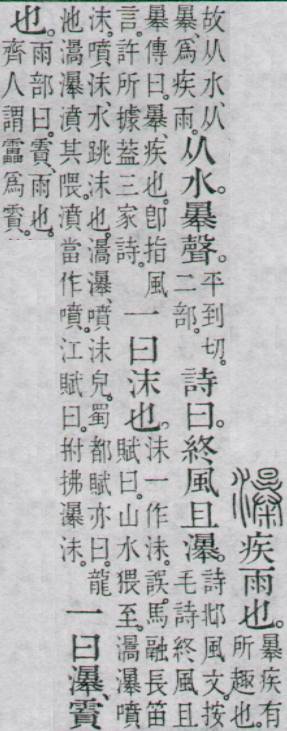 瀑疾雨也。㬥疾有所趣也。
故从水、从㬥、爲疾雨。从水。㬥聲。平到切。二部。詩曰。終風且瀑。詩邶風文。按毛詩終風且
㬥、傳曰。㬥、疾也。卽指風言。許所據葢三家詩。一曰沫也。沫一作沬。誤。馬融長笛賦曰。山水猥至。滈瀑噴
沫。噴沫、水跳沫也。滈瀑、噴沫皃。蜀都賦亦曰。龍池滈瀑濆其隈。濆當作噴。江賦曰。拊拂瀑沫。一曰瀑、霣
也。雨部曰。霣、雨也。齊人謂靁爲霣。